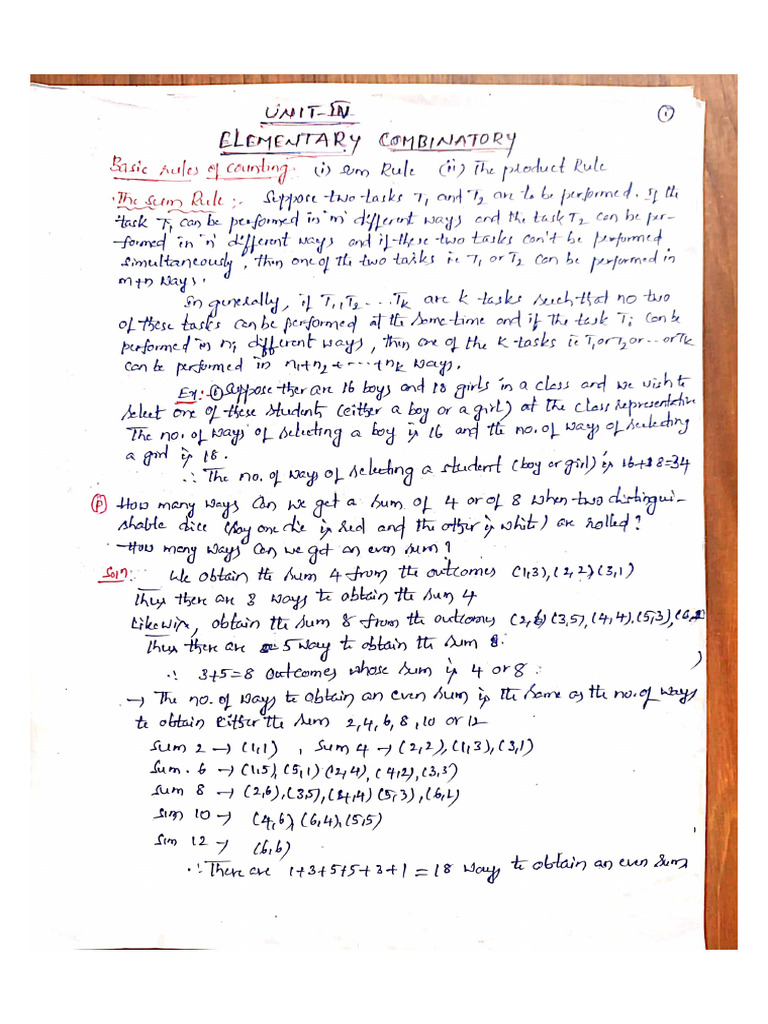 UNIT-IV
①
ELEMENTARY COMBINATORY
Basic rules of counting: (i) sum Rule (ii) The product Rule
The sum Rule:- Suppose two tasks T₁ and T₂ are to be performed. If the
task T₁ can be performed in 'm' different ways and the task T₂ can be per-
-formed in 'n' different ways and if these two tasks can't be performed
simultaneously, then one of the two tasks ie T₁ or T₂ can be performed in
m+n ways.
In generally, if T₁,T₂ ... Tk are k tasks such that no two
of these tasks can be performed at the same time and if the task Ti can be
performed in ni different ways, then one of the k-tasks ie T₁ or T₂ or ... or Tk
can be performed in n₁+n₂+ ... +nk ways.
Ex:- ① Suppose ther are 16 boys and 18 girls in a class and we wish to
select one of these students (either a boy or a girl) at the class representative
The no. of ways of selecting a boy is 16 and the no. of ways of selecting
a girl is 18.
∴ The no. of ways of selecting a student (boy or girl) is 16+18=34
Ⓟ How many ways can we get a sum of 4 or of 8 when two distingui-
shable dice (say one die is red and the other is white) are rolled?
How many ways can we get an even sum?
Soln: We obtain the sum 4 from the outcomes (1,3), (2,2) (3,1)
Thus there are 3 ways to obtain the sum 4
Likewise, obtain the sum 8 from the outcomes (2,6) (3,5), (4,4), (5,3), (6,2
)
Thus there are 5 way to obtain the sum 8.
∴ 3+5=8 outcomes whose sum is 4 or 8.
→ The no. of ways to obtain an even sum is the same as the no. of ways
to obtain Either the sum 2,4,6,8,10 or 12
sum 2 → (1,1) , sum 4 → (2,2), (1,3), (3,1)
sum. 6 → (1,5), (5,1) (2,4), (4,2), (3,3)
sum 8 → (2,6), (3,5), (4,4) (5,3), (6,2)
sum 10 → (4,6), (6,4), (5,5)
sum 12 → (6,6)
∴ There are 1+3+5+5+3+1 = 18 ways to obtain an even sum